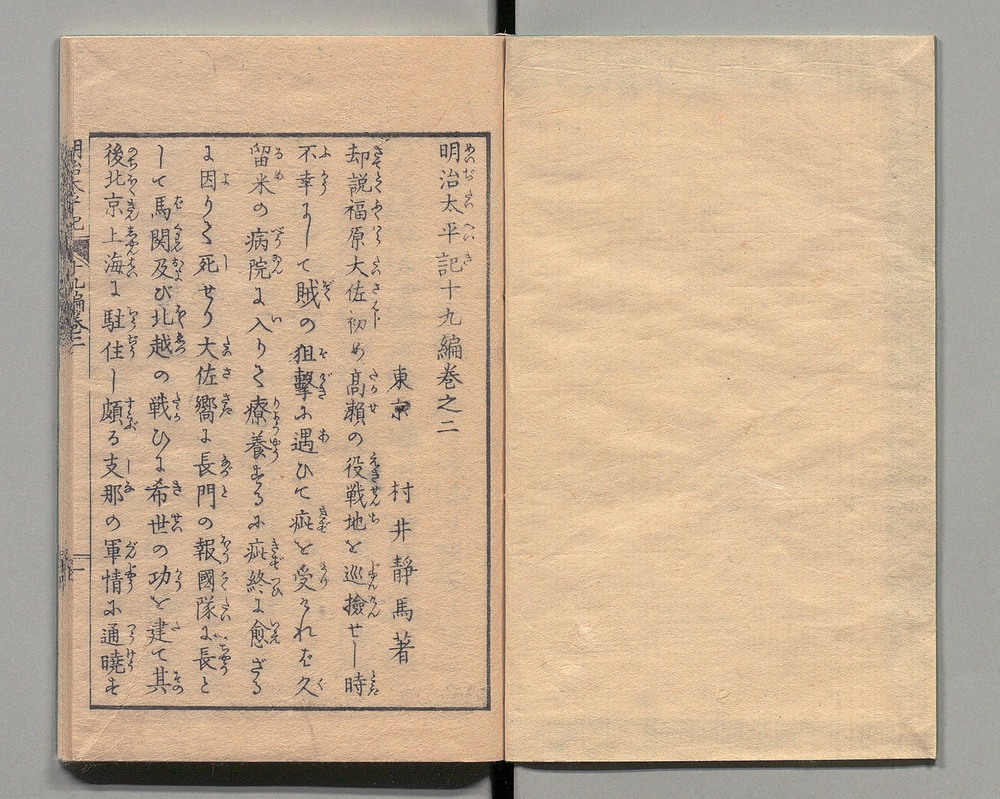 明治太平記十九編巻之二
東京 村井靜馬著
却説福原大佐初め高瀬の役戦地を巡撿せし時
不幸にして賊の狙撃に遇ひて疵を受けれバ久
留米の病院に入りて療養するに疵終に愈ざる
に因りて死せり大佐嚮に長門の報國隊に長と
して馬関及び北越の戦ひに希世の功を建て其
後北京上海に駐住し頗る支那の軍情に通暁せ
明治太平記 十九編巻二